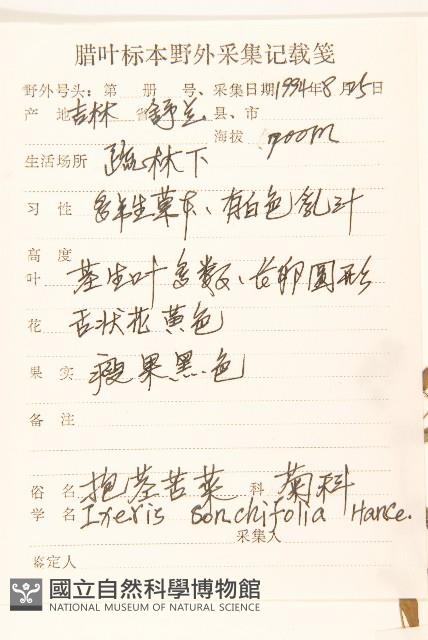 腊叶标本野外采集记载笺
野外号头：第 册 号、采集日期1994年8月25日
产 地吉林 省舒兰县、市
海拔 900m
生活场所 疏林下
习 性 多年生草本、有白色乳汁
高 度
叶 基生叶多数、长卵圆形
花 舌状花黄色
果 实 瘦果黑色
备 注
俗 名 抱茎苦菜 科 菊科
学 名 Ixeris sonchifolia Hance.
采集人
鉴定人
國立自然科學博物館
NATIONAL MUSEUM OF NATURAL SCIENCE